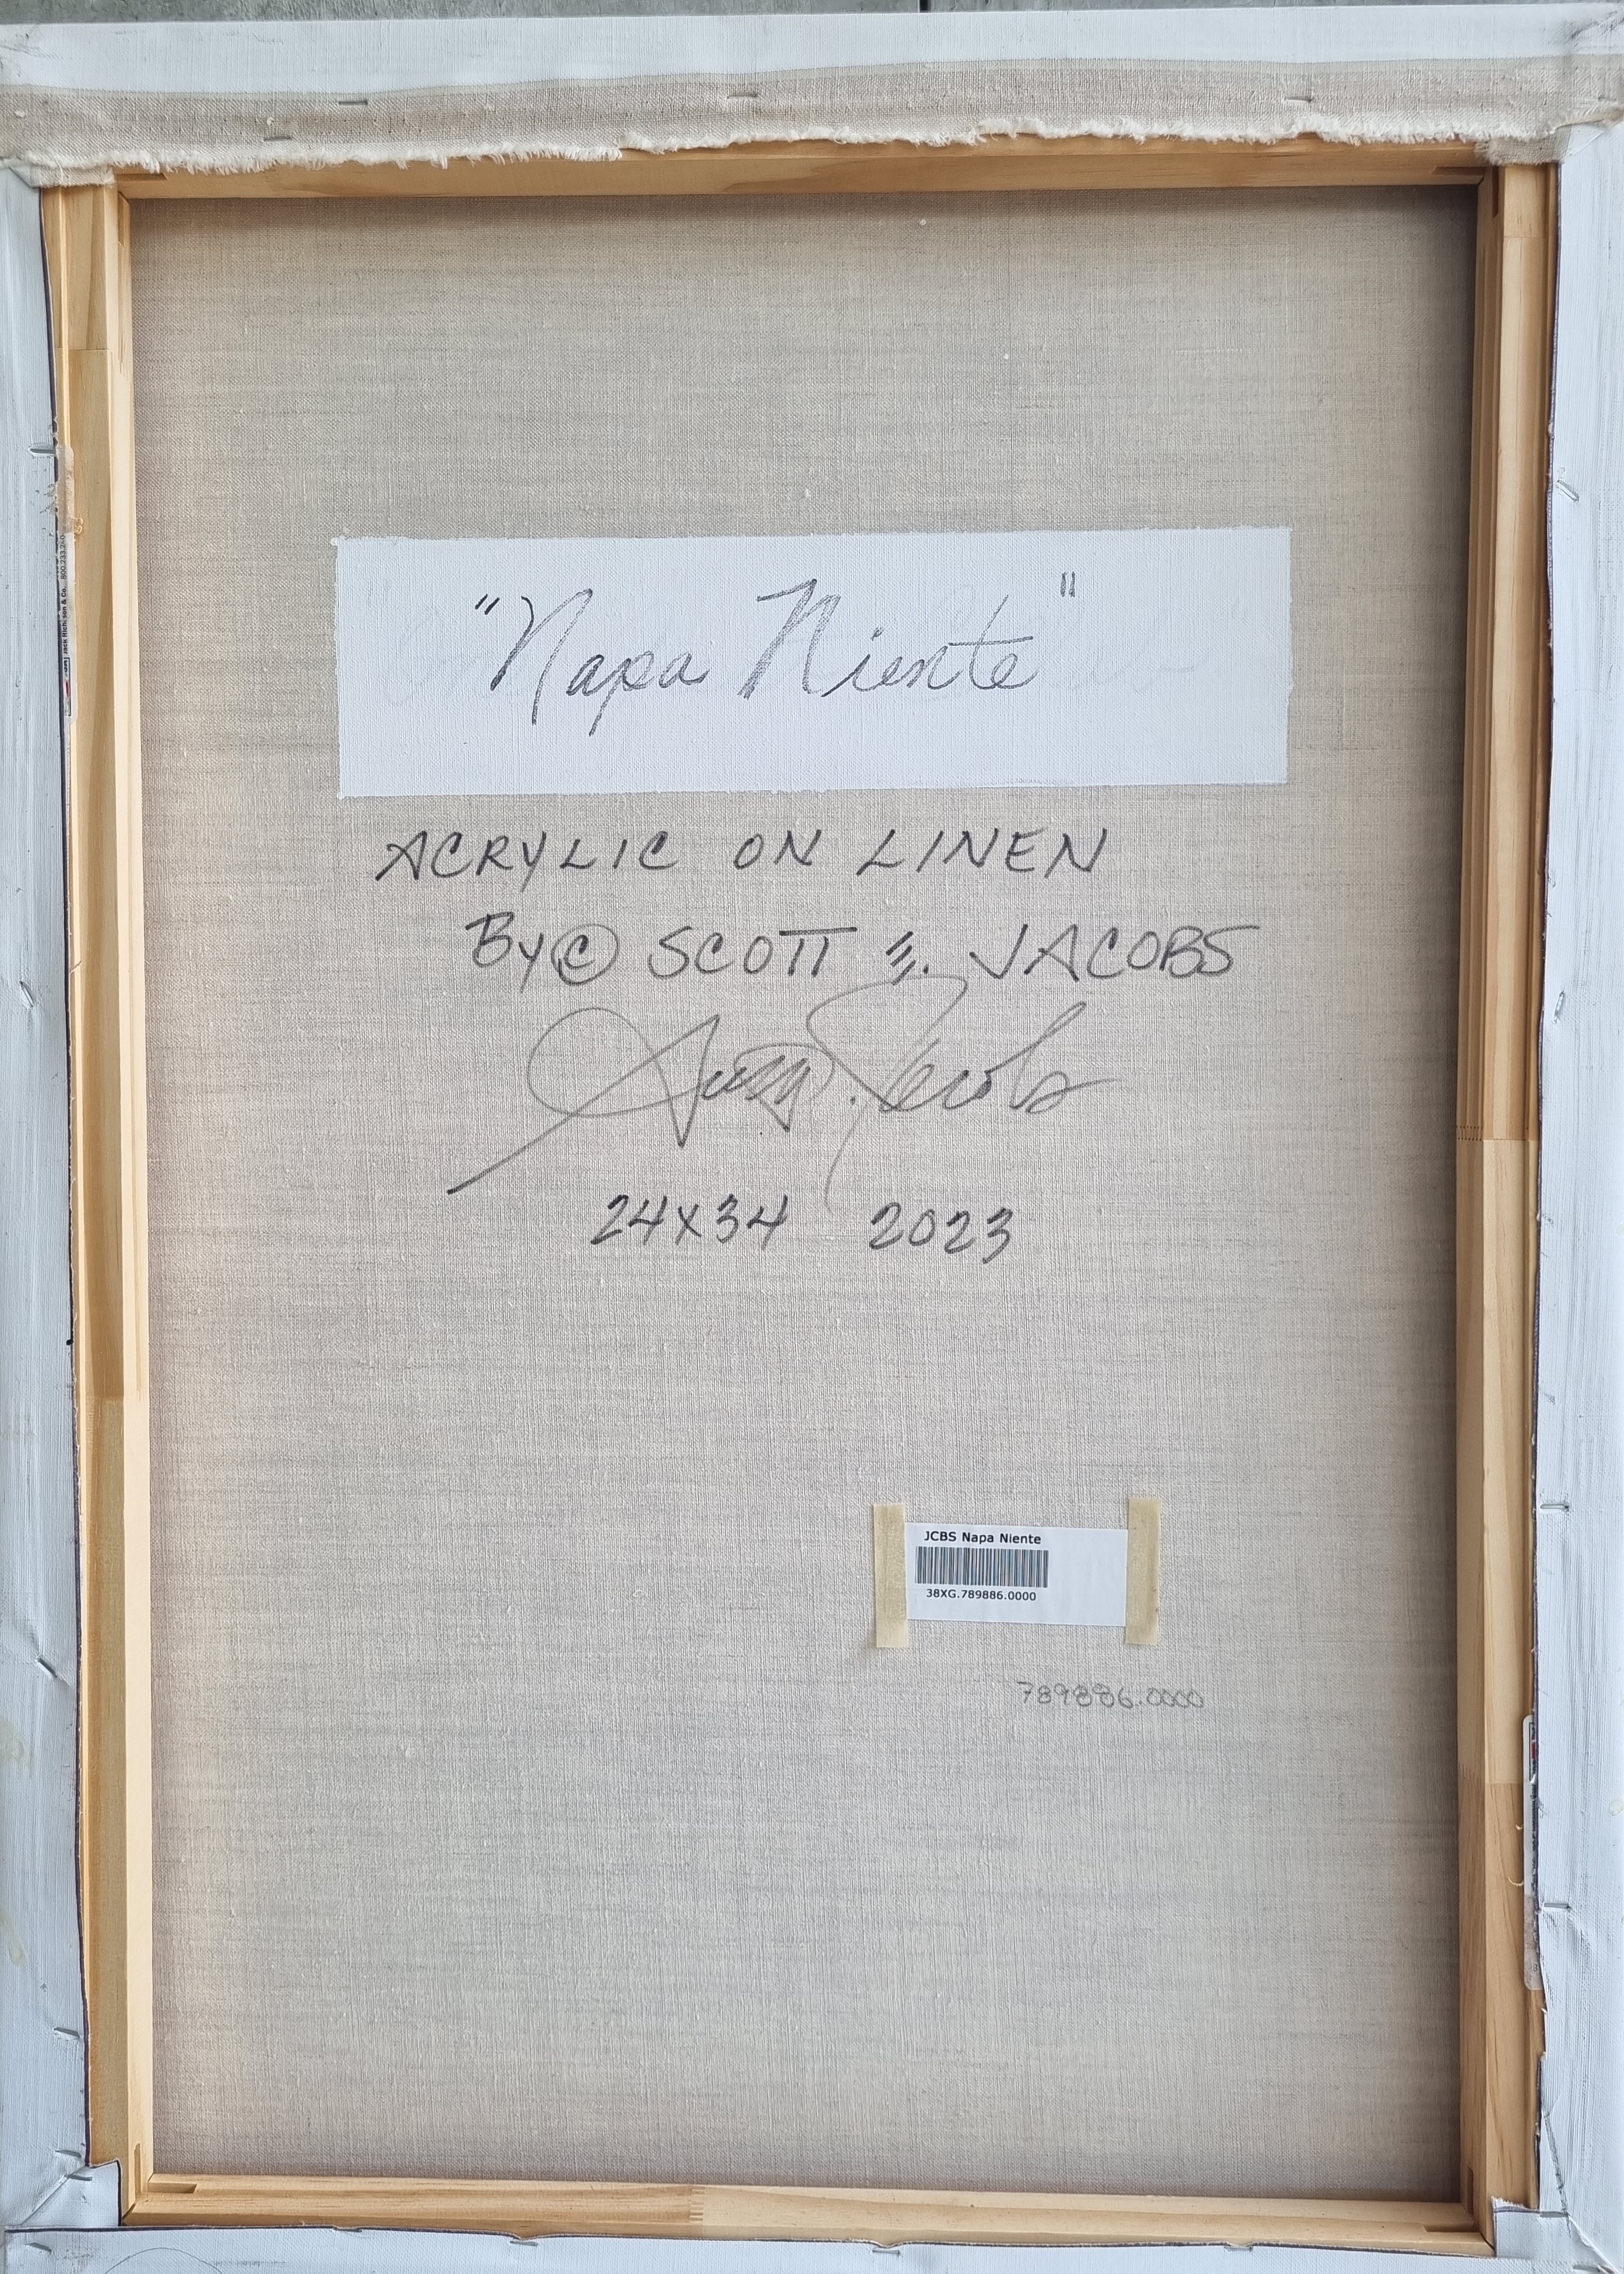 "Napa Niente"
ACRYLIC ON LINEN
By © SCOTT JACOBS
24x34 2023
JCBS Napa Niente
38XG.789886.0000
789886.0000